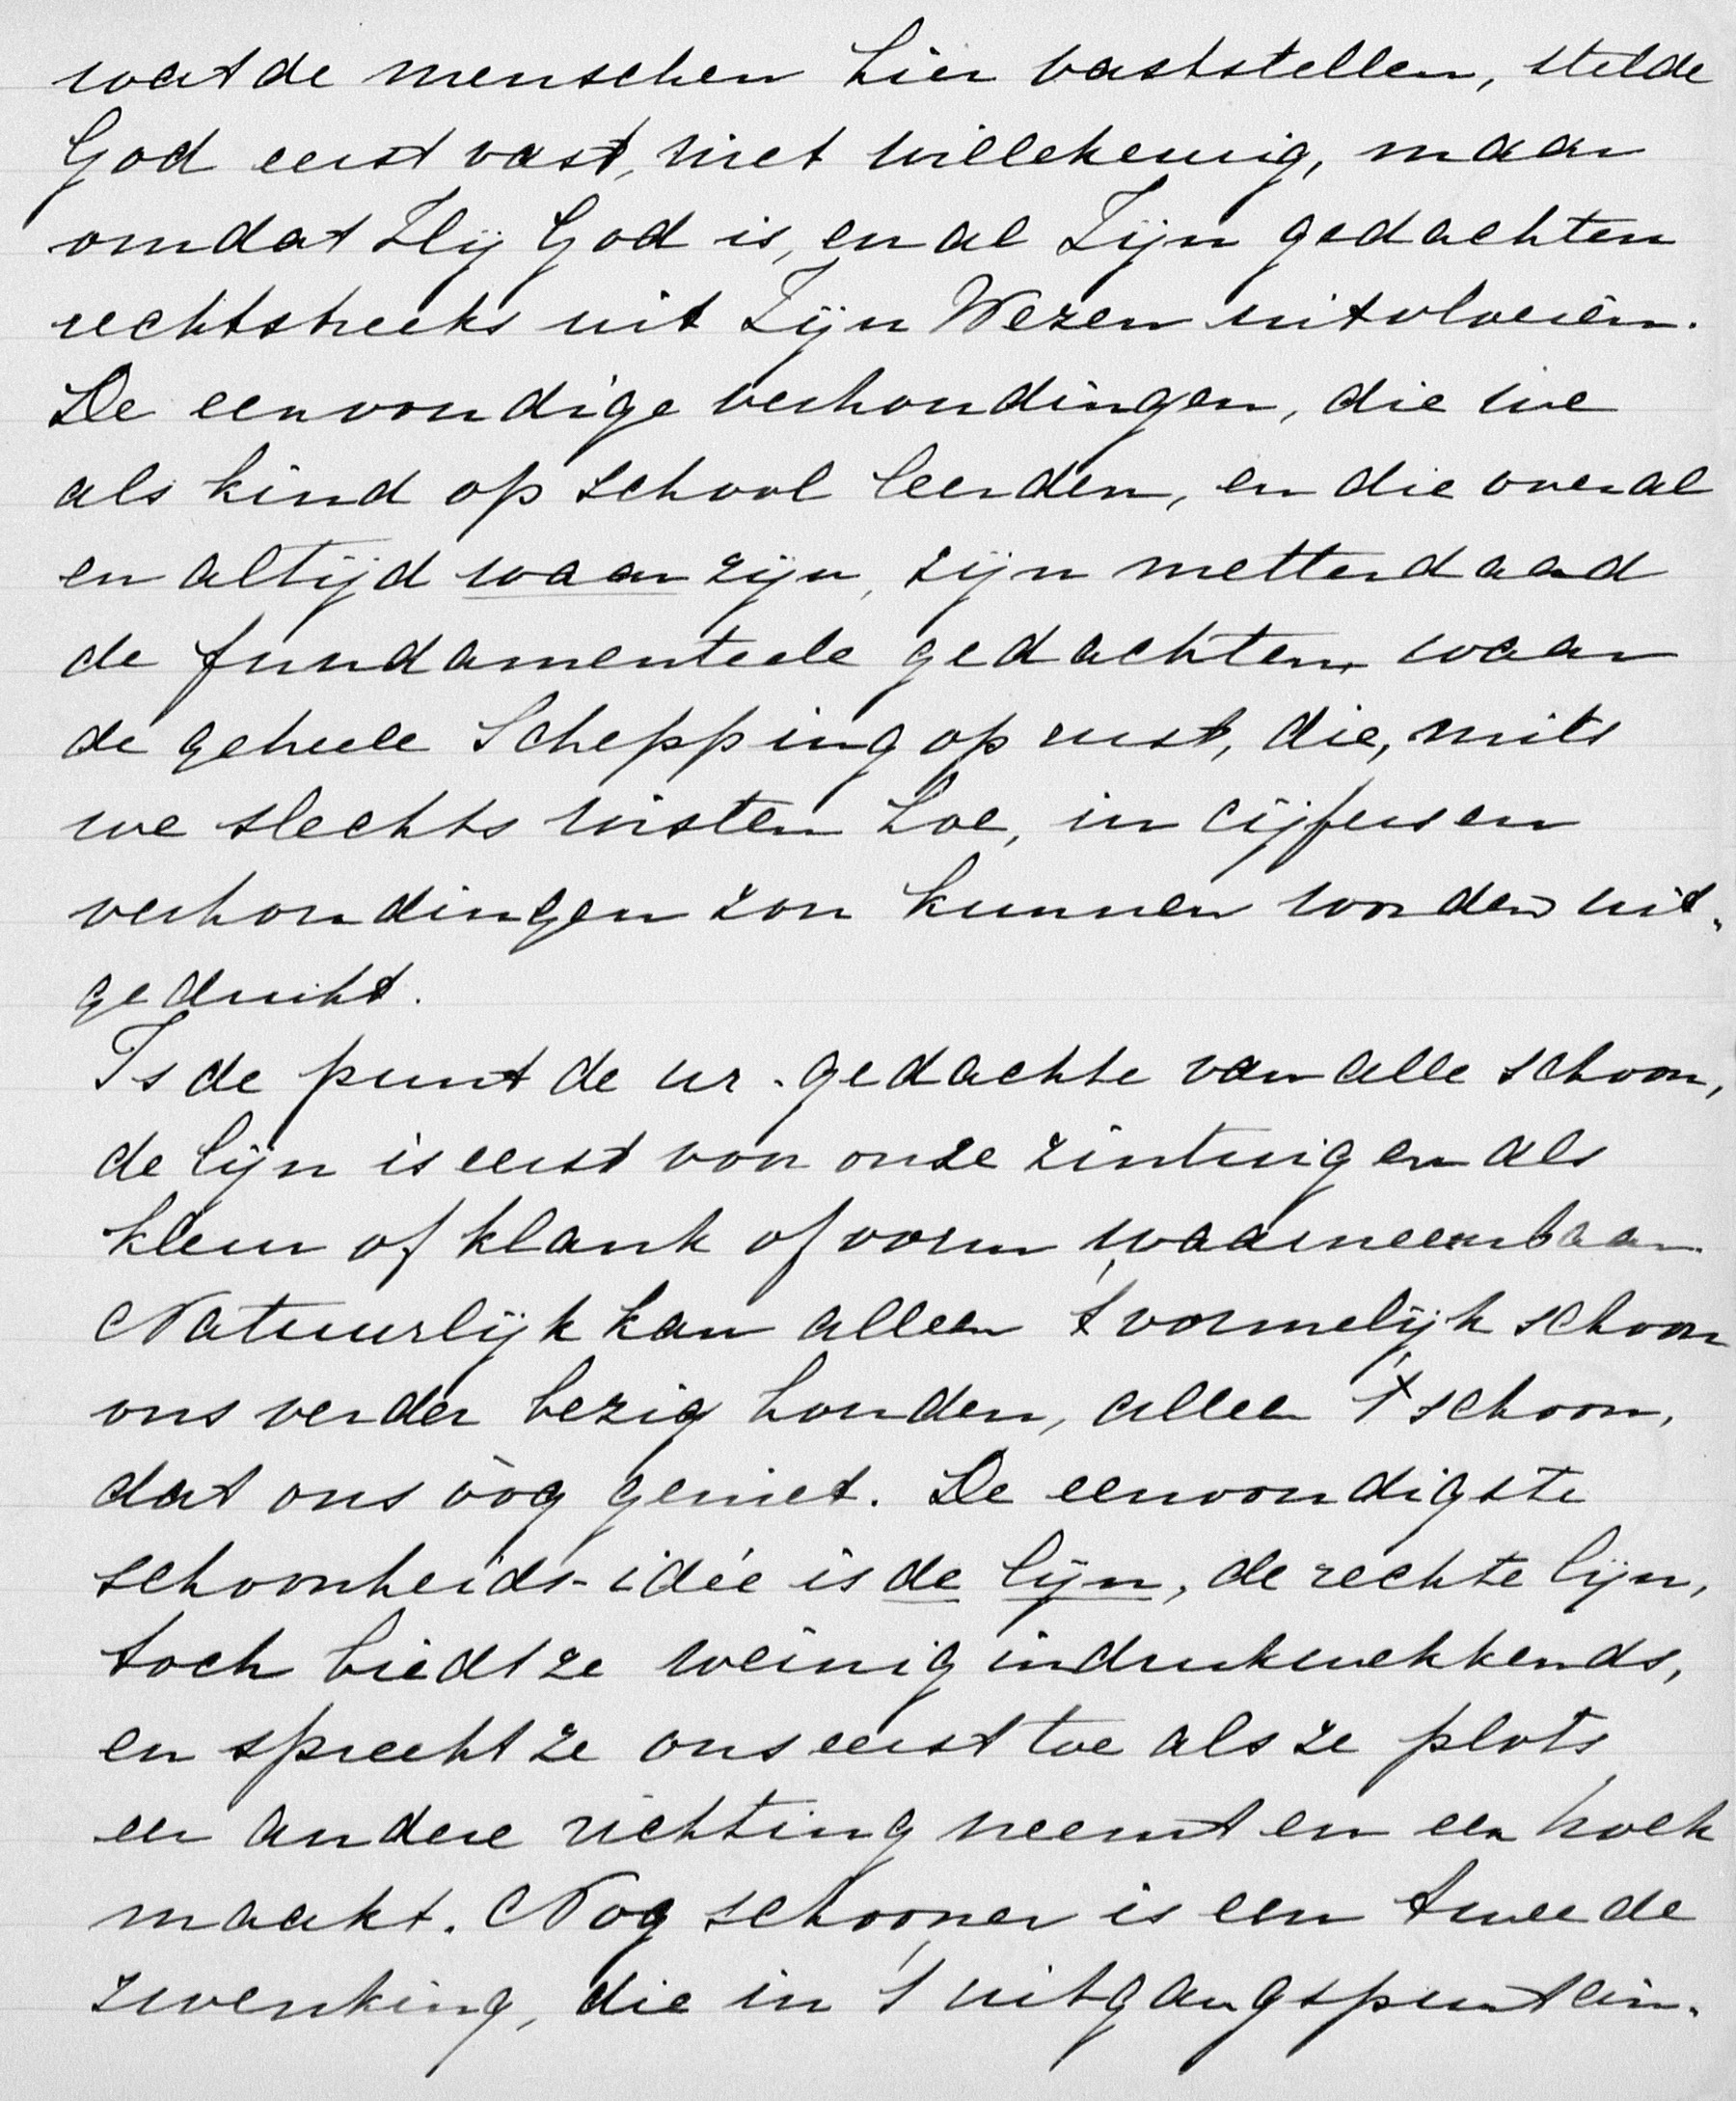 wat de menschen hier vaststellen, stelde
God eerst vast, niet willekeurig, maar
omdat Hij God is, en al Zijn gedachten
rechtstreeks uit Zijn Wezen uitvloeiën.
De eenvoudige verhoudingen, die we
als kind op school leerden, en die overal
en altijd waar zijn, zijn metterdaad
de fundamenteele gedachten, waar
de geheele Schepping op rust, die, mits
we slechts wisten hoe, in cijfers en
verhoudingen zou kunnen worden uit-
gedrukt.
Is de punt de ur-gedachte van alle schoon,
de lijn is eerst voor onze zintuigen als
kleur of klank of vorm waarneembaar.
Natuurlijk kan alleen 't vormelijk schoon
ons verder bezig houden, alleen 't schoon,
dat ons òòg geniet. De eenvoudigste
schoonheids-idée is de lijn, de rechte lijn,
toch biedt ze weinig indrukwekkends,
en spreekt ze ons eerst toe als ze plots
een andere richting neemt en een hoek
maakt. Nog schooner is een tweede
zwenking, die in 't uitgangspunt ein-